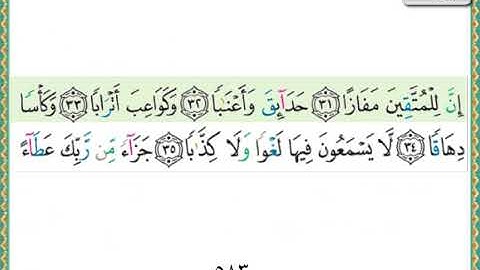 إِنَّ لِلْمُتَّقِينَ مَفَازًا ٣١ حَدَآئِقَ وَأَعْنَٰبًا ٣٢ وَكَوَاعِبَ أَتْرَابًا ٣٣ وَكَأْسًا
دِهَاقًا ٣٤ لَّا يَسْمَعُونَ فِيهَا لَغْوًا وَلَا كِذَّٰبًا ٣٥ جَزَآءً مِّن رَّبِّكَ عَطَآءً
٥٨٣